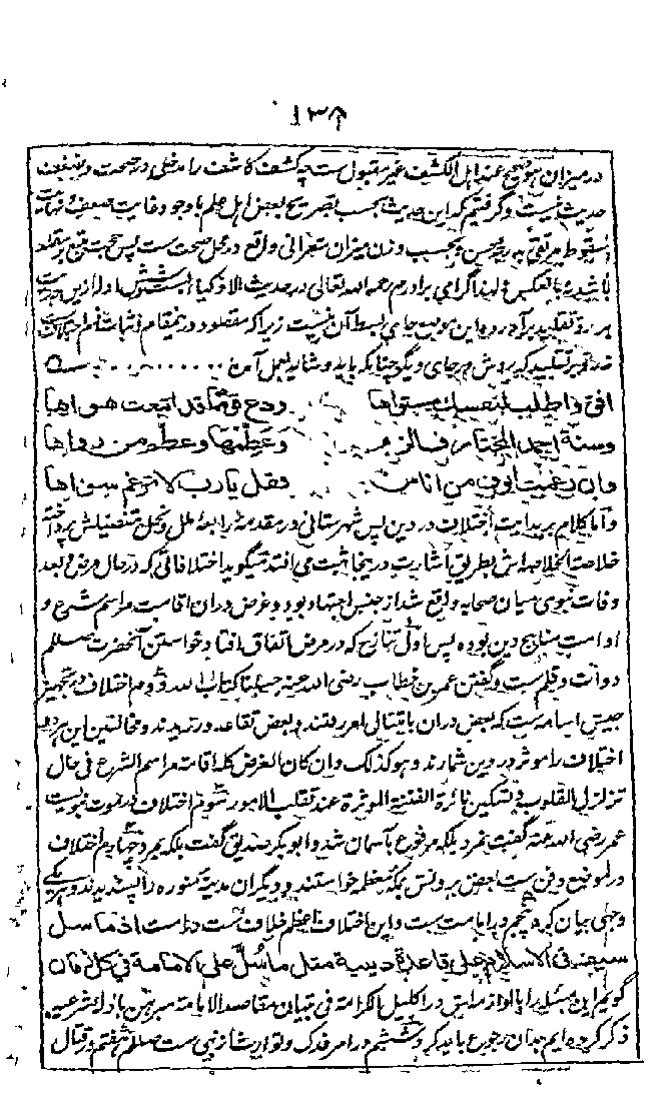 ۱۳۸
در میزان موضح عند اہل الکشف غیر مقبول ست چہ کشف کاشف را مدخلی در صحت و ضعف
حدیث نیست و گرفتیم کہ این حدیث بحسب تصریح بعض اہل علم با وجود غایت ضعف
وزن میزان شعرانی واقع در محل صحت ست پس حجت
باشد نہ بالعکس و لہذا گرامی برادرم رحمہ اللہ تعالی در حدیث
بر رد تقلید برآورده این موضع جای بسط آن نیست زیرا کہ مقصود درین مقام اثبات
در جای دیگر چنانکہ باید و شاید بعمل آمده
افق واطلب لنفسك مستواها ودع قد اتبعت هواها
وسنة احمد المختار فالزم وعظمها وعظم من رواها
وان رغمت انوف من اناس فقل یارب لا ترغم سواها
و اما کلام بر بدایت اختلاف در دین پس شہرستانی در مقدمہ رابعہ ملل و نحل بتفصیلش پرداختہ
خلاصۃ الخلاصہ اش بطریق اشارت درینجا ثبت می افتد میگوید اختلافاتی کہ در حال مرض و بعد
وفات نبوی میان صحابہ واقع شد از جنس اجتہاد بود و غرض دران اقامت مراسم شرع و
ادامت مناہج دین بوده پس اول تنازع کہ در مرض اتفاق افتاد خواستن آنحضرت صلعم
دوات و قلم ست و گفتن عمر بن خطاب رضی اللہ عنہ حسبنا کتاب اللہ و دوم اختلاف در تجہیز
جیش اسامہ ست کہ بعض دران بامتثال امر رفتند و بعض تقاعد ورزیدند و مخالفین این ہر دو
اختلاف را موثر در دین شمارند و ہو کذلک وان کان الغرض کلہ اقامۃ مراسم الشرع فی حال
تزلزل القلوب و تسکین نائرۃ الفتنۃ الموثرۃ عند تقلب الامور سوم اختلاف در موت نبویست
عمر رضی اللہ عنہ گفت نمرد بلکہ مرفوع بآسمان شد و ابوبکر صدیق گفت بلکہ بمرد چہارم اختلاف
در موضع دفن ست بعض بردنش بمکہ معظمہ خواستند و دیگران مدینہ منوره را پسندیدند و ہر یکے
وجہی بیان کرد پنجم در امامت ست و این اختلاف اعظم خلاف ست در امت اذ ما سل
سیف فی الاسلام علی قاعدة دینیة مثل ما سُلَّ علی الامامة فی كل زمان
گویم این مسئلہ را با لوازمہایش در اکلیل الکرامہ فی تبیان مقاصد الامامۃ مبرہن بادلہ شرعیہ
ذکر کرده ایم بدان رجوع باید کرد و ششم در امر فدک و توارث از نبی ست صلعم ہفتم در قتال